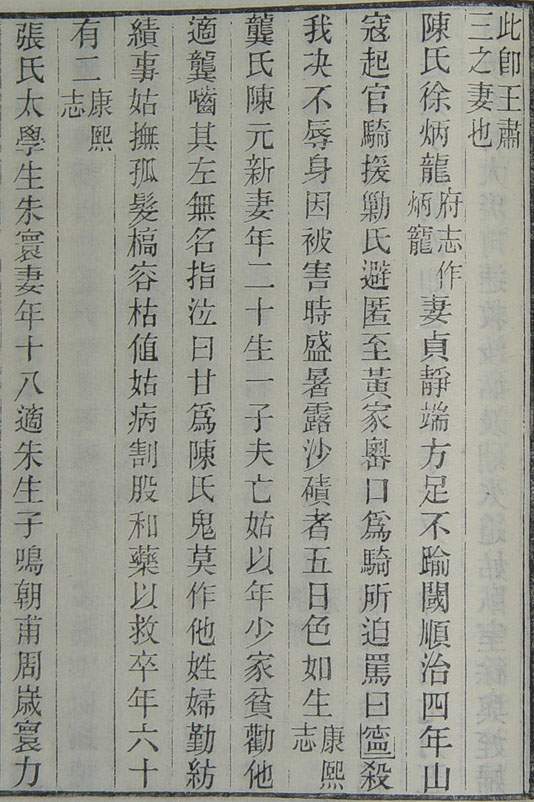 此卽王肅
三之妻也
陳氏徐炳龍府志作炳寵妻貞靜端方足不踰閾順治四年山
寇起官騎援勦氏避匿至黃家嶴口爲騎所迫罵曰寍殺
我决不辱身因被害時盛暑露沙磧者五日色如生康熙志
龔氏陳元新妻年二十生一子夫亡姑以年少家貧勸他
適龔嚙其左無名指泣曰甘爲陳氏鬼莫作他姓婦勤紡
績事姑撫孤髮槁容枯値姑病割股和藥以救卒年六十
有二康熙志
張氏太學生朱寰妻年十八適朱生子鳴朝甫周歲寰力